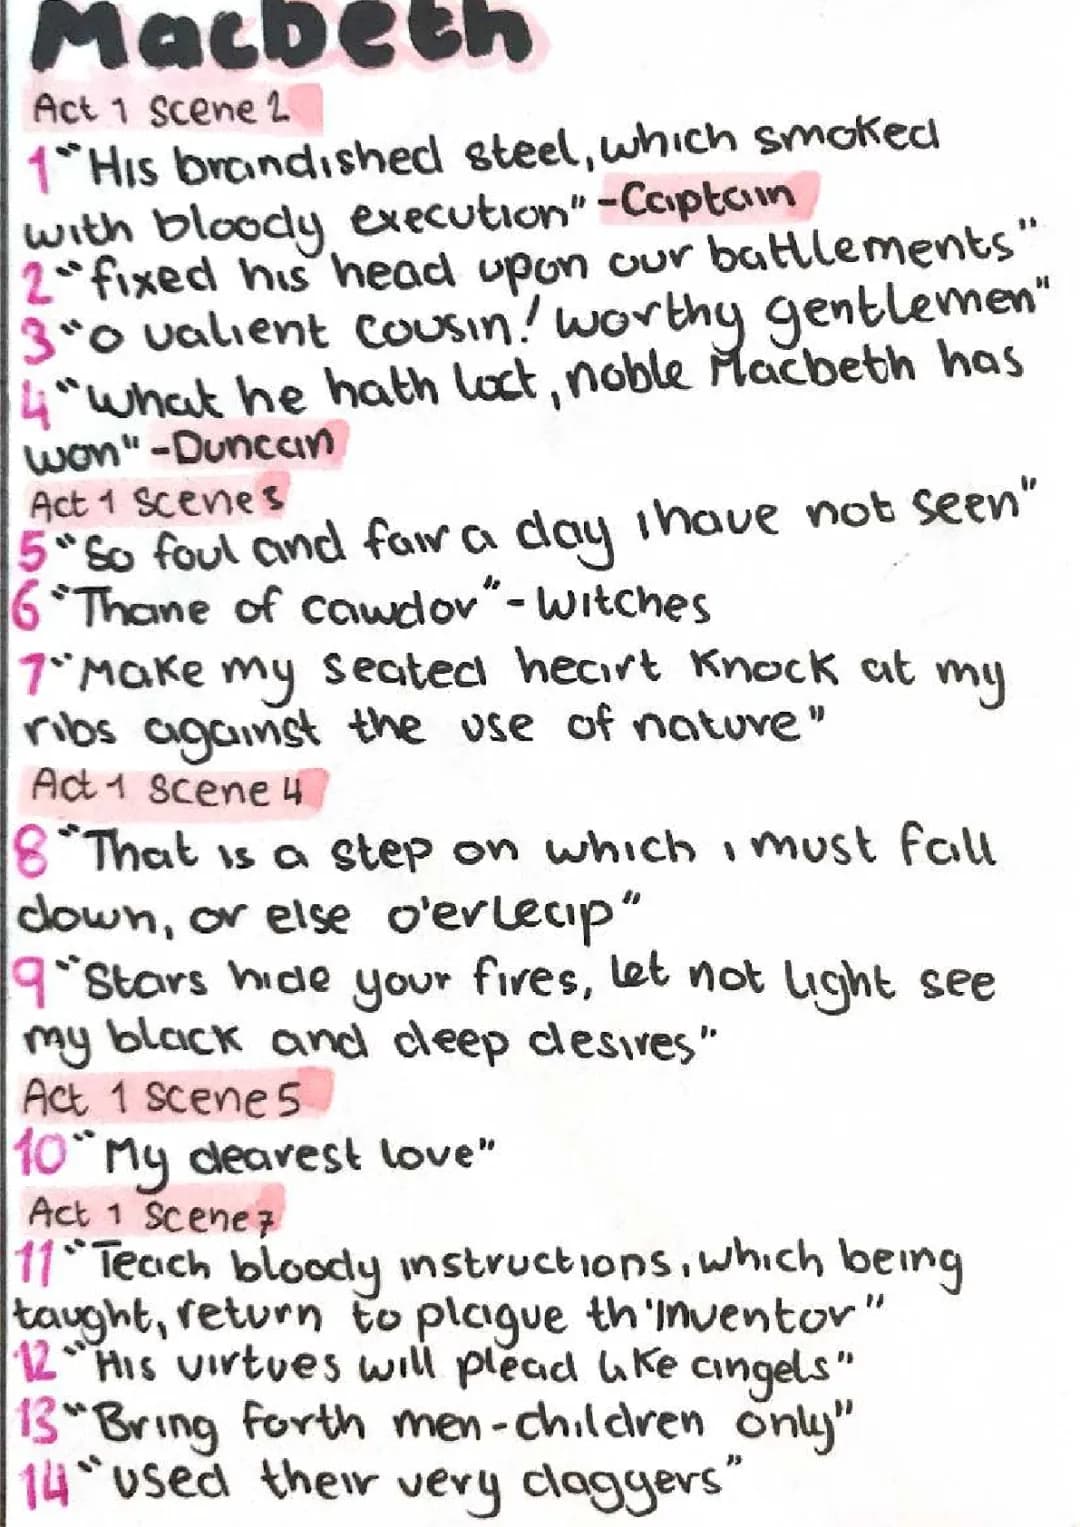 Macbeth
Act 1 Scene 2
1 "His brandished steel, which smoked
with bloody execution" - Captain
2 "fixed his head upon our battlements"
3 "o valient cousin! worthy gentlemen"
4 "what he hath lost, noble Macbeth has
won" - Duncan
Act 1 Scene 3
5 "So foul and fair a day i have not seen"
6 "Thane of cawdor" - Witches
7 "Make my seated heart knock at my
ribs against the use of nature"
Act 1 Scene 4
8 "That is a step on which i must fall
down, or else o'erleap"
9 "Stars hide your fires, let not light see
my black and deep desires"
Act 1 Scene 5
10 "My dearest love"
Act 1 Scene 7
11 "Teach bloody instructions, which being
taught, return to plague th'inventor"
12 "His virtues will plead like angels"
13 "Bring forth men-children only"
14 "used their very daggers"